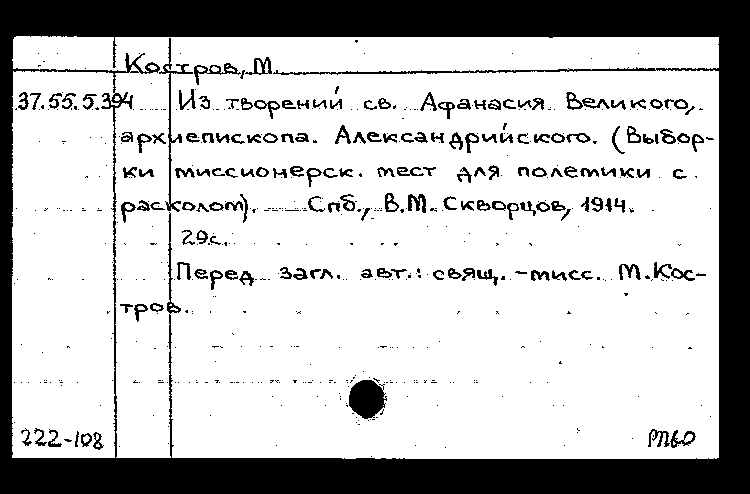 Костров, М.
37.55.5.394 Из творений св. Афанасия Великого,
архиепископа. Александрийского. (Выбор-
ки миссионерск. мест для полемики с
расколом). — Спб., В.М. Скворцов, 1914.
29с.
Перед загл. авт.: свящ.-мисс. М.Кос-
тров.
222-108